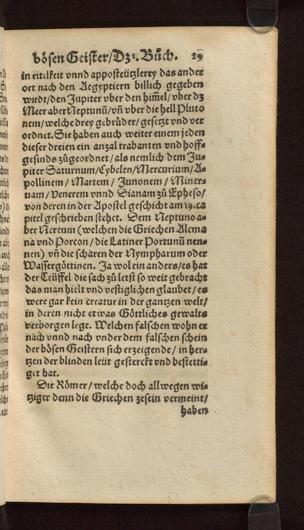 bösen Geister/Dz1. Bůch. 29
in eitelkeit vnnd apposteützlerey das ander
ort nach den Aegyptiern billich gegeben
wirdt/den Jupiter vber den him̃el/vber dz
Meer aber Neptunũ/vñ vber die hell Pluto
nem/welche drey gebrüder/gesetzt vnd ver
ordnet. Sie haben auch weiter einem jeden
dieser dreien ein anzal trabanten vnd hoff⸗
gesinds zůgeordnet/als nemlich dem Ju⸗
piter Saturnum/Cybelen/Mercurium/A⸗
pollinem/Martem/Junonem/Miner⸗
uam/Venerem vnnd Dianam zů Epheso/
von deren in der Apostel geschicht am 19. ca
pitel geschrieben stehet. Dem Neptuno a⸗
ber Nereum (welchen die Griechen Alcma
na vnd Porcon/die Latiner Portunũ nen⸗
nen) vñ die scharen der Nympharum oder
Wassergöttinen. Ja wol ein anders/es hat
der Teüffel die sach zů letst so weit gebracht
das man hielt vnd vestiglichen glaubet/es
were gar kein creatur in der gantzen welt/
in deren nicht etwas Göttliches gewalts
verborgen lege. Welchen falschen wohn er
nach vnnd nach vnder dem falschen schein
der bösen Geistern sich erzeigende/in her⸗
tzen der blinden leüt gesterckt vnd bestetti⸗
get hat.
Die Römer/welche doch allwegen wi⸗
tziger denn die Griechen zesein vermeint/
haben